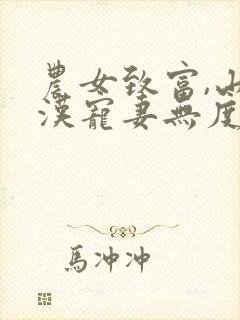 農女致富,山
漢寵妻無度
馬冲冲